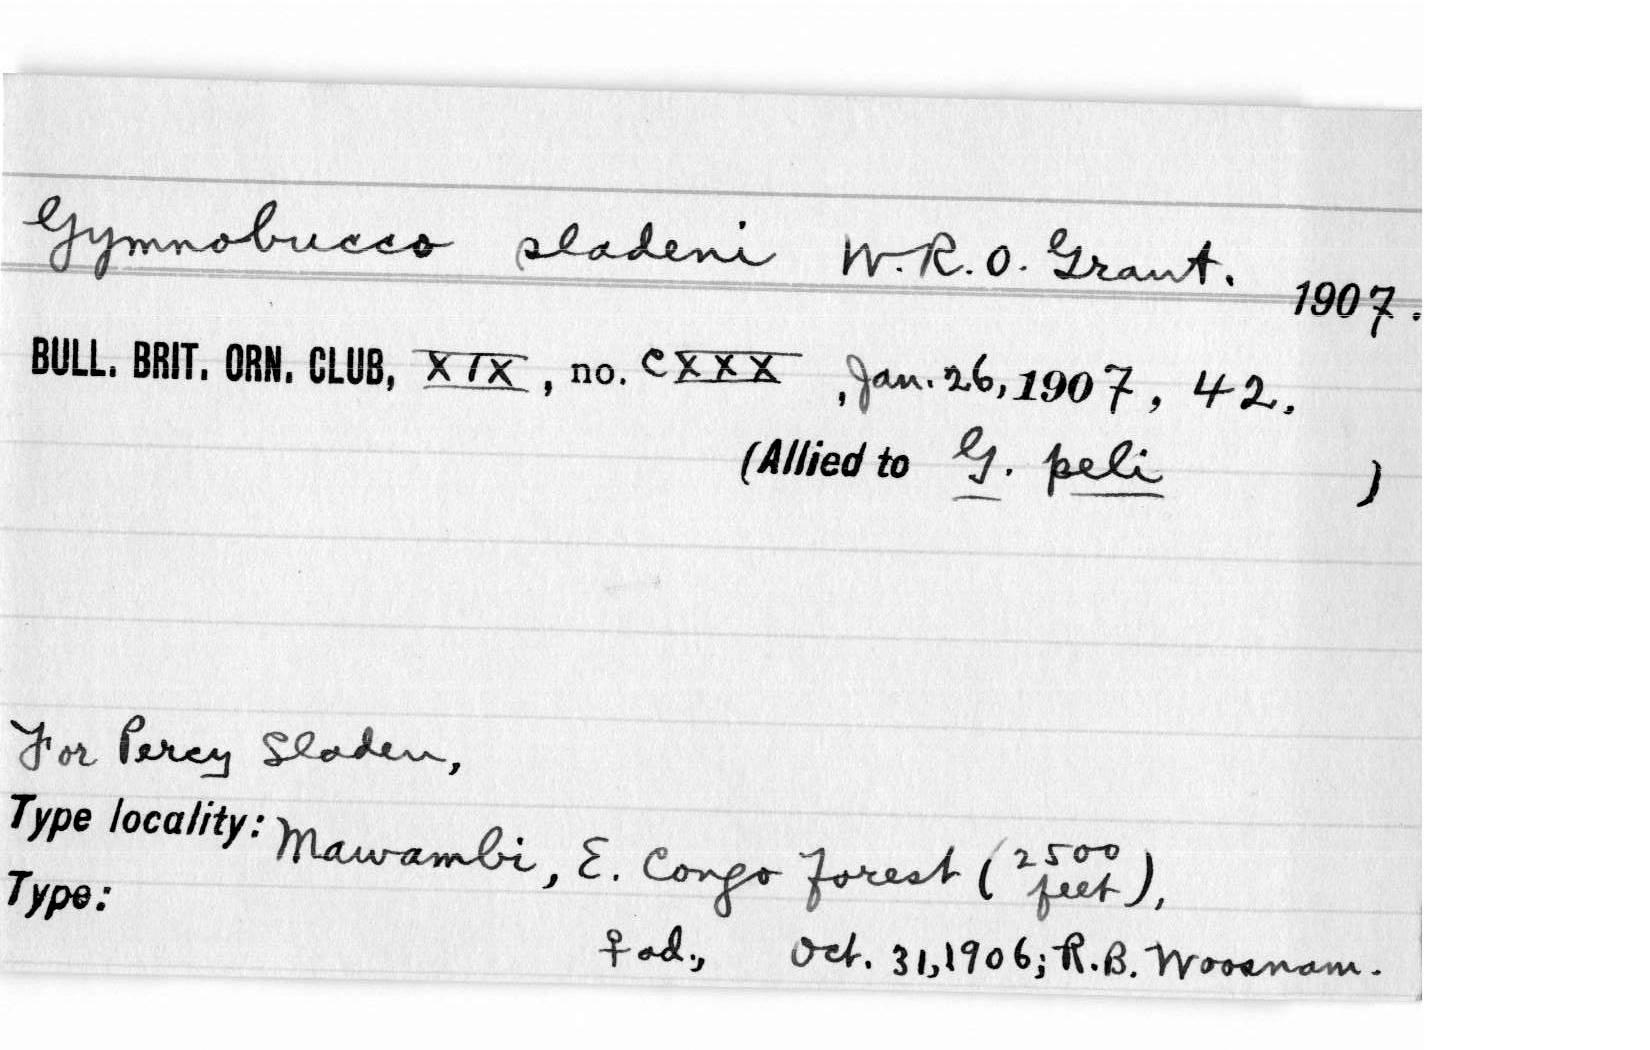 Gymnobucco sladeni W.R.O. Grant. 1907.
BULL. BRIT. ORN. CLUB, XIX, no. CXXX, Jan. 26, 1907, 42.
(Allied to G. peli )
For Percy Sladen,
Type locality: Mawambi, E. Congo Forest (2500 feet),
Type:
♀ ad., Oct. 31, 1906; R.B. Woosnam.